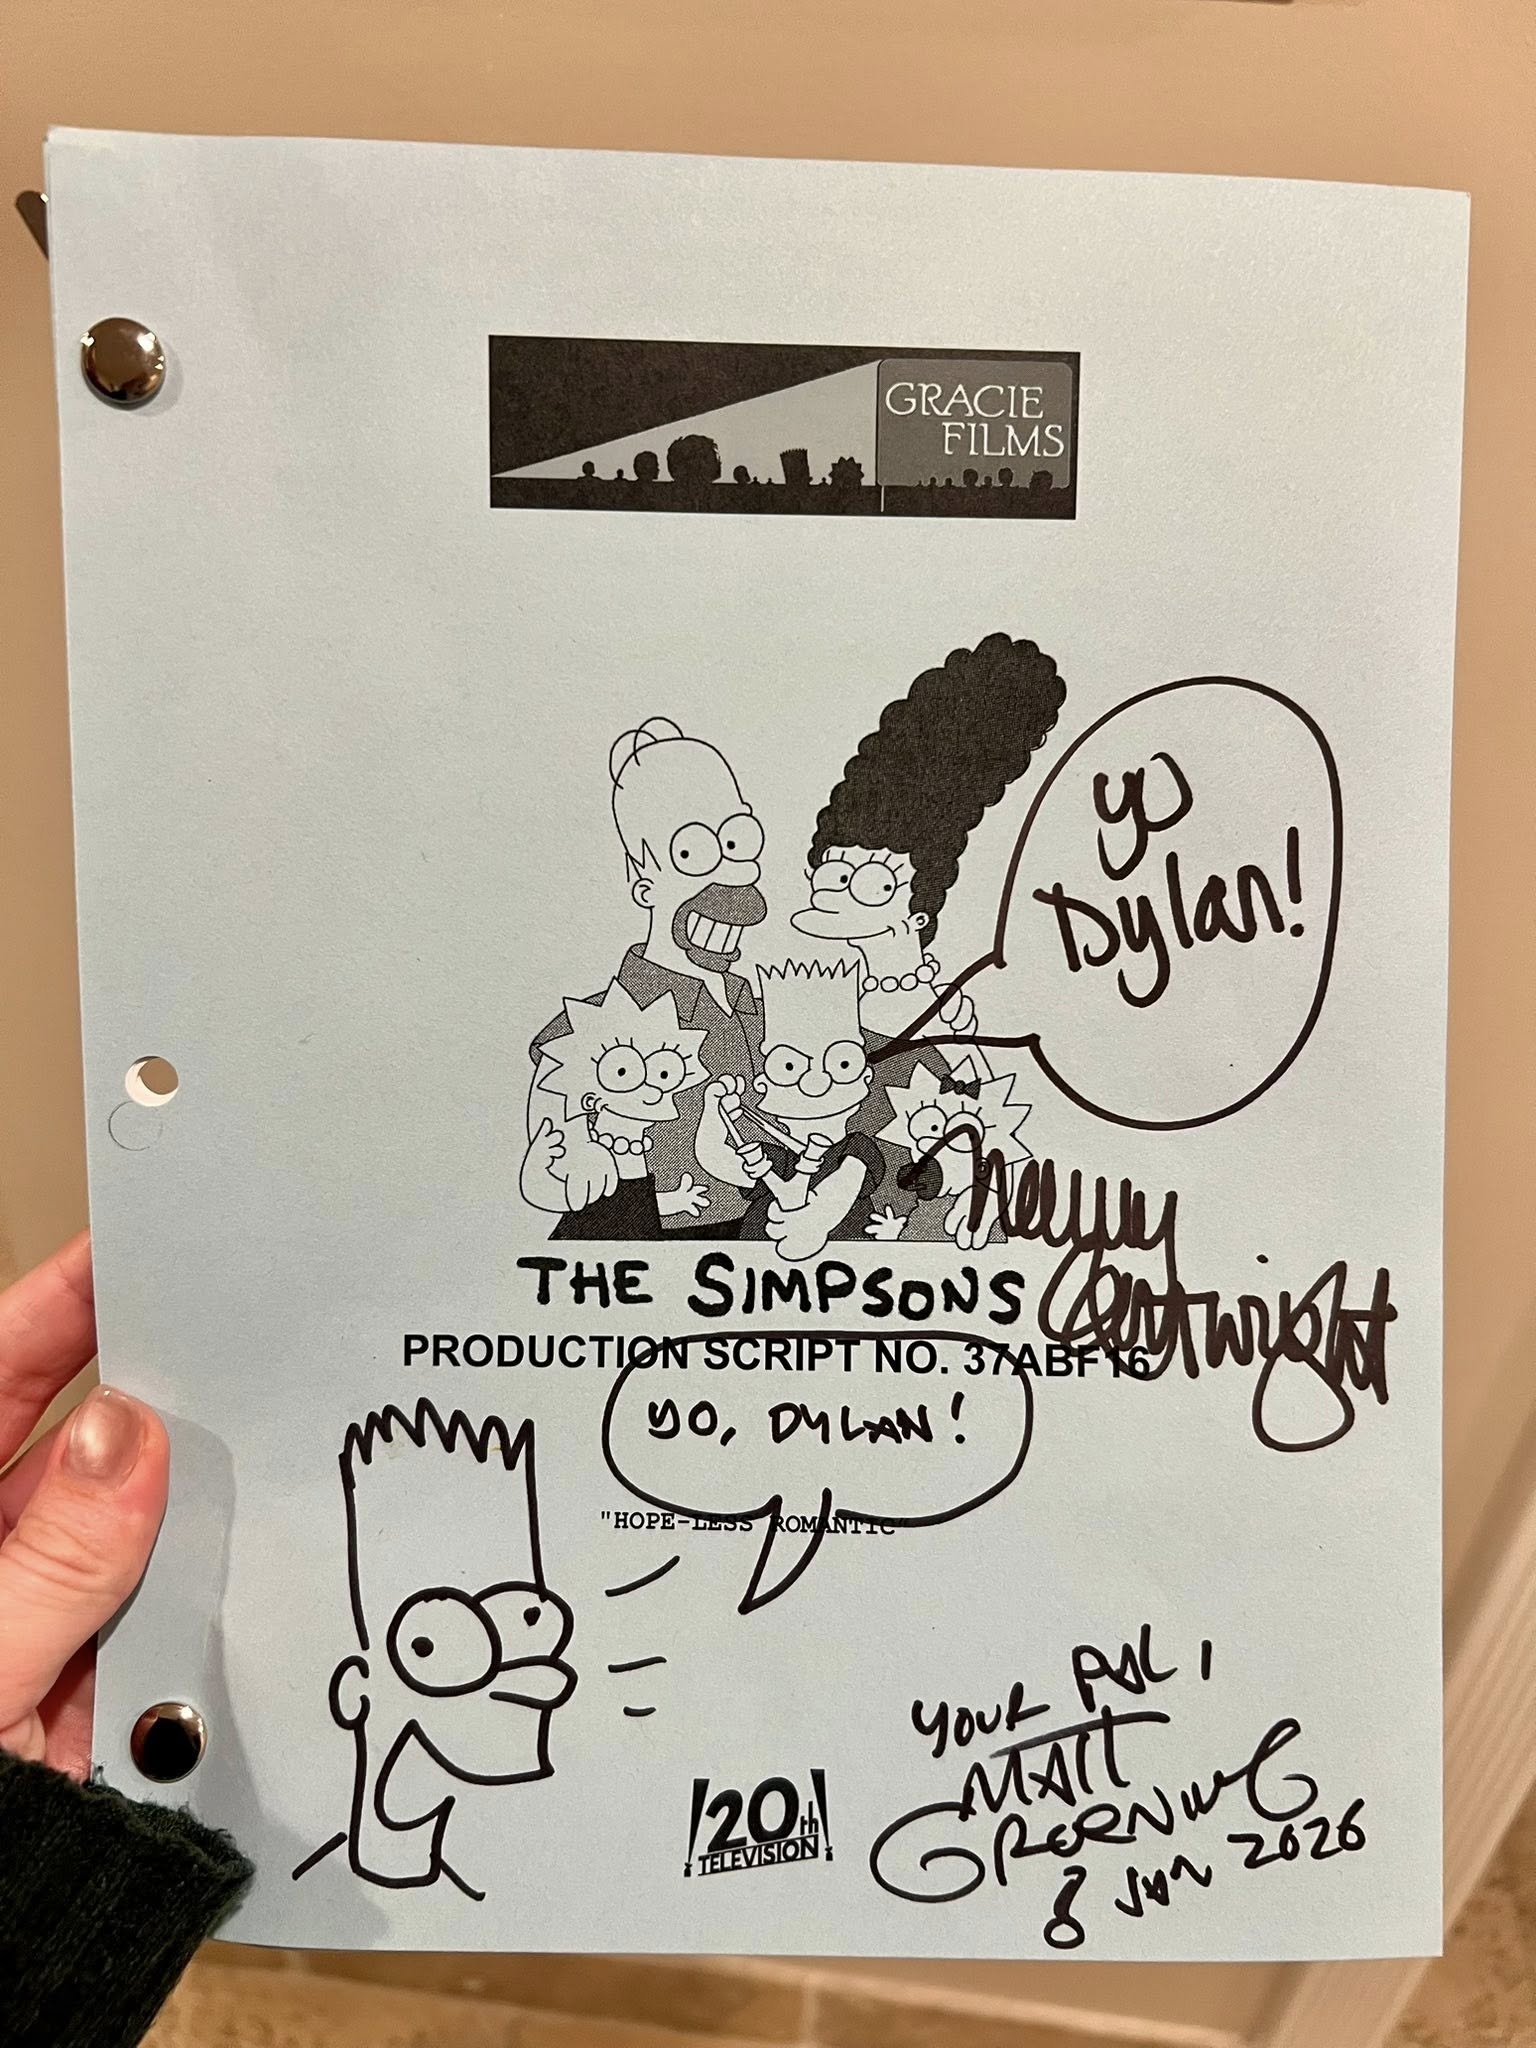 GRACIE
FILMS
yo
Dylan!
Nancy
Cartwright
THE SIMPSONS
PRODUCTION SCRIPT NO. 37ABF16
YO, DYLAN!
"HOPE-LESS ROMANTIC"
YOUR PAL,
MATT
GROENING
8 JAN 2026
20th
TELEVISION